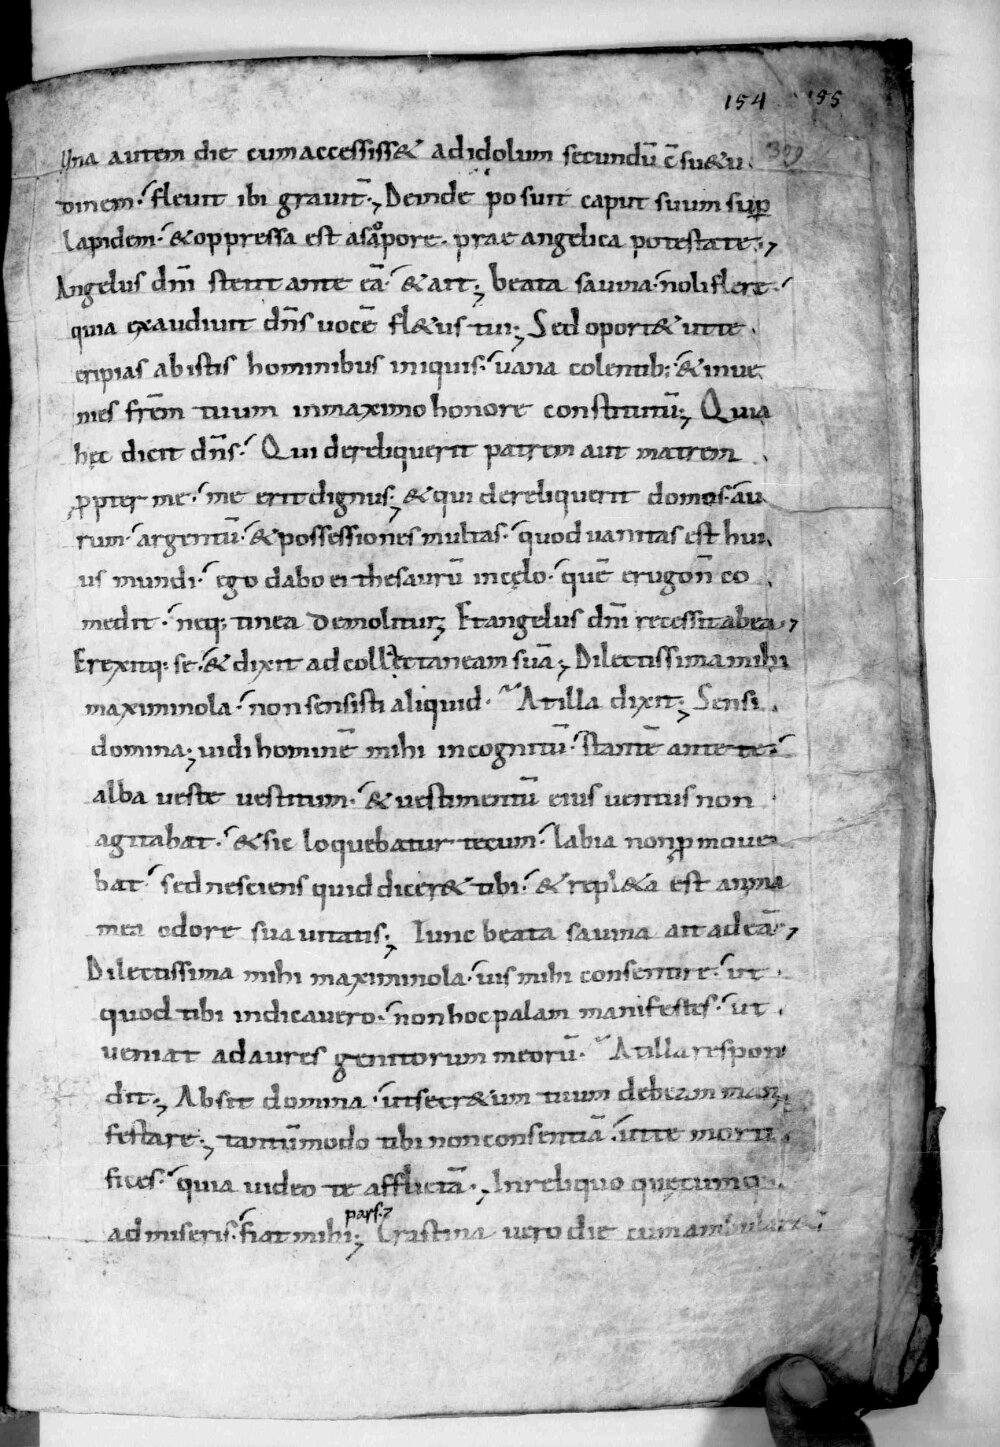 154 155
309
Una autem die cum accessiss& ad idolum secundū c̄su&u
dinem. fleuit ibi grauit̄; Deinde posuit caput suum suꝑ
lapidem. & oppressa est a sopore. prae angelica potestate;
Angelus dn̄i stetit ante eā. & ait; beata sauina. noli flere.
quia exaudiuit dn̄s uocē fl&us tui; Sed oport& ut te
eripias ab istis hominibus iniquis. uana colentib; & inue
nies fr̄em tuum in maximo honore constitutū; Quia
hęc dicit dn̄s. Qui dereliquerit patrem aut matrem
ꝓpter me. me erit dignus; & qui dereliquerit domos. au
rum. argentū. & possessiones multas. quod uanitas est hui
us mundi. ego dabo ei thesaurū in cęlo. quē erugo non̄ co
medit. neq; tinea demolitur; Et angelus dn̄i recessit ab ea;
Erexitq; se. & dixit ad collectaneam suā; Dilectissima mihi
maximinola. non sensisti aliquid. At illa dixit; Sensi
domina; uidi hominē mihi incognitū. stantē ante te.
alba ueste uestitum. & uestimentū eius uentus non
agitabat. & sic loquebatur tecum. labia non ꝓmoue
bat. sed nesciens quid dicer& tibi. & repl&a est anima
mea odore suauitatis; Tunc beata sauina ait ad eā;
Dilectissima mihi maximinola. uis mihi consentire. ut
quod tibi indicauero. non hoc palam manifestes. ut
ueniat ad aures genitorum meorū. At illa respon
dit; Absit domina. ut secr&um tuum debeam mani
festare; tantūmodo tibi non consentiā. ut te morti
fices. quia uideo te afflictā; In reliquo quęcumq;
admiseris. fiat mihi pars; Crastina uero die cum ambular&